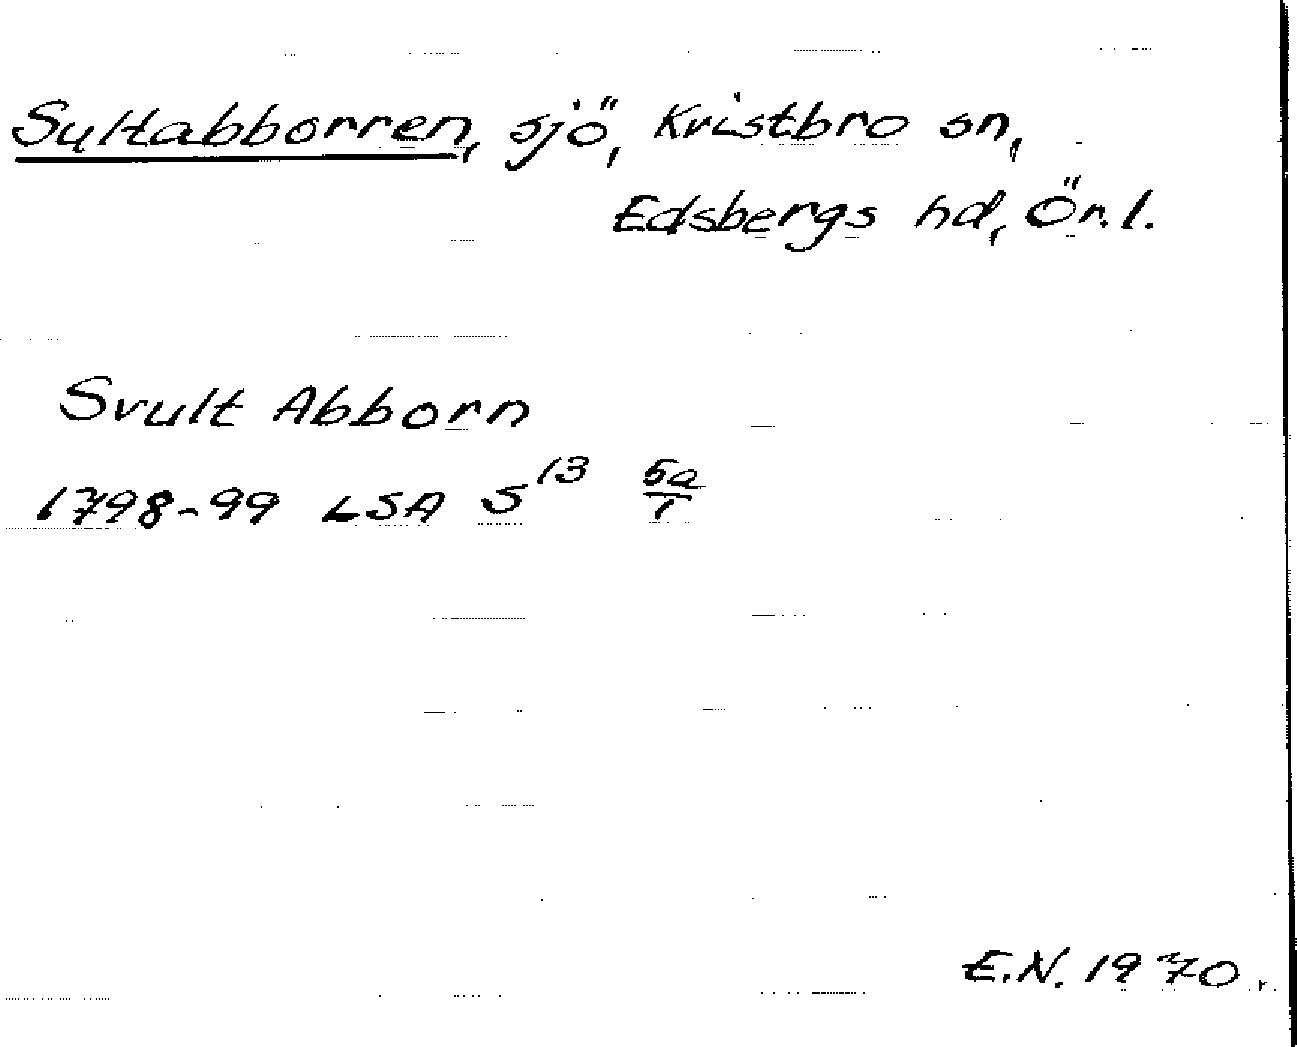 Sultabborren, sjö, Kvistbro sn,
Edsbergs hd, Ör.l.
Svult Abborn
1798-99 LSA S¹³ 5a/1
E.N. 1970.